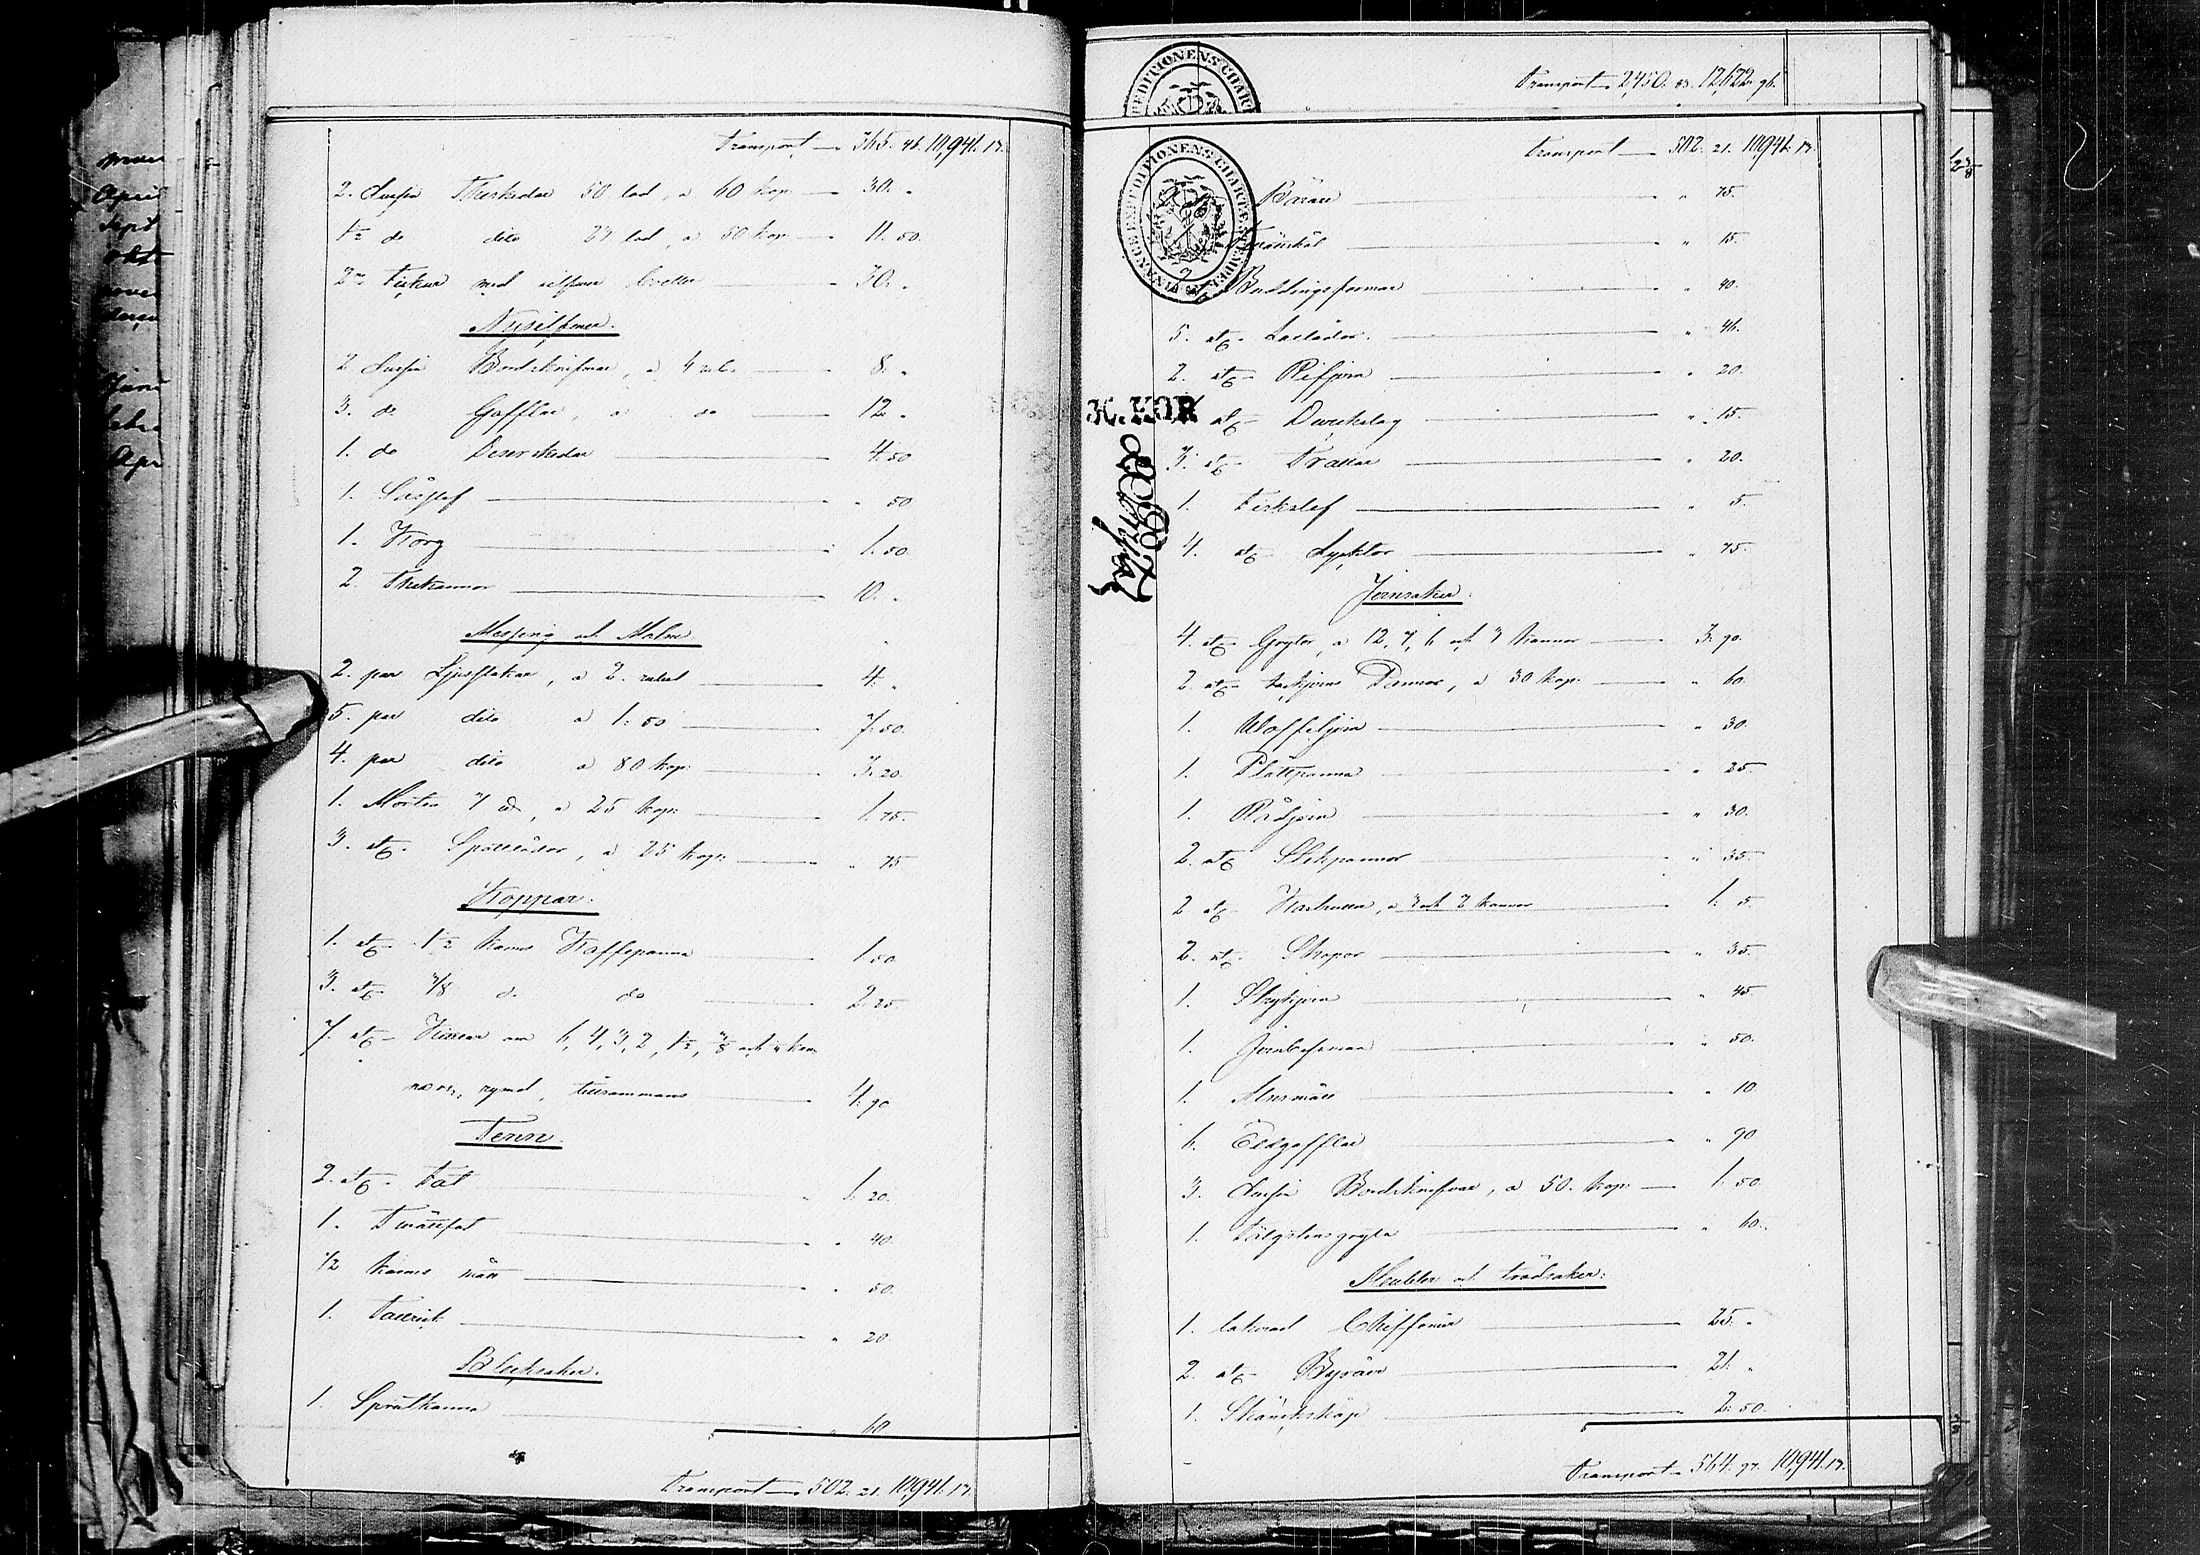 Transport — 365. 46. 10,941. 17.
2. dussin Theskedar 50 lod, a 60 kop — 30. "
1½ do dito 23 lod, a 50 kop — 11. 50.
2ne Fiskar med silfver — 30. "
Nysilfver.
2 dussin Bordsknifvar, a 4 rub. — 8. "
3. do Gafflar, a do — 12 "
1. do Deserskedar — 4. 50
1. Såsslef — " 50
1. Korg — 1. 50.
2. Thekannor — 10. "
Messing och Malm
2. par Ljusstakar, a 2. rubel — 4. "
5. par dito a 1: 50 — 7. 50.
4. par dito a 80 kop. — 3. 20.
1. Mortel 7 ℔, a 25 kop: — 1. 75.
3. st. Spottlådor, a 25 kop: — " 75
Koppar:
1. st. 1½ kanns Kaffepanna — 1. 50
3. st. 7/8 do do — 2. 25.
7. st. Kittlar om 6, 4, 3, 2, 1½, 7/8 och ½ kan-
nors, rymd, tillsammans — 4. 90
Tenn.
2. st. Fat — 1. 20.
1. Tvättfat — " 40.
1/2 kanns mått — " 50.
1. Tallrick — " 20.
Blecksaker.
1. Språtkanna — " 60
Transport — 502. 21. 10,941. 17.
Transport — 2,450. 83. 12,622. 96.
Transport — 502. 21. 10,941. 17.
EXPEDITIONENS CHARTÆ STEMPEL
FINANCE
30. KOP.
Bårar — " 75.
" 15.
Puddingsformar — " 40.
5. st. Laklådor. — " 46.
2. st. Rifjern — " 20.
st. Durckslag — " 15.
3. st. Trattar — " 20.
1. Fiskslef — " 5.
4. st. Lycktor — " 75.
Jernsaker:
4. st. Grytor, a 12, 7, 6 och 3 kannor — 3. 90.
2. st. tackjerns Pannor, a 30 kop: — " 60.
1. Woffeljern — " 30.
1. Plättpanna — " 25.
1. Rådjern — " 30.
2. st. Stekpannor — " 35.
2 st. Kastruller, a 3 och 2 kannor — 1. 5.
2. st. Skopor — " 35.
1. Strykjern — " 45.
1. — " 50.
1. — " 10
6. Eldgafflar — " 90
3. dussin Bordsknifvar, a 50. kop: — 1. 50.
1. Täljstensgryta — " 60.
Meubler och trädsaker:
1. lakerad Chiffonier — 25. "
2. st. Byråer — 21. "
1. Skänkskåp — 2. 50.
Transport — 564. 97. 10,941. 17.